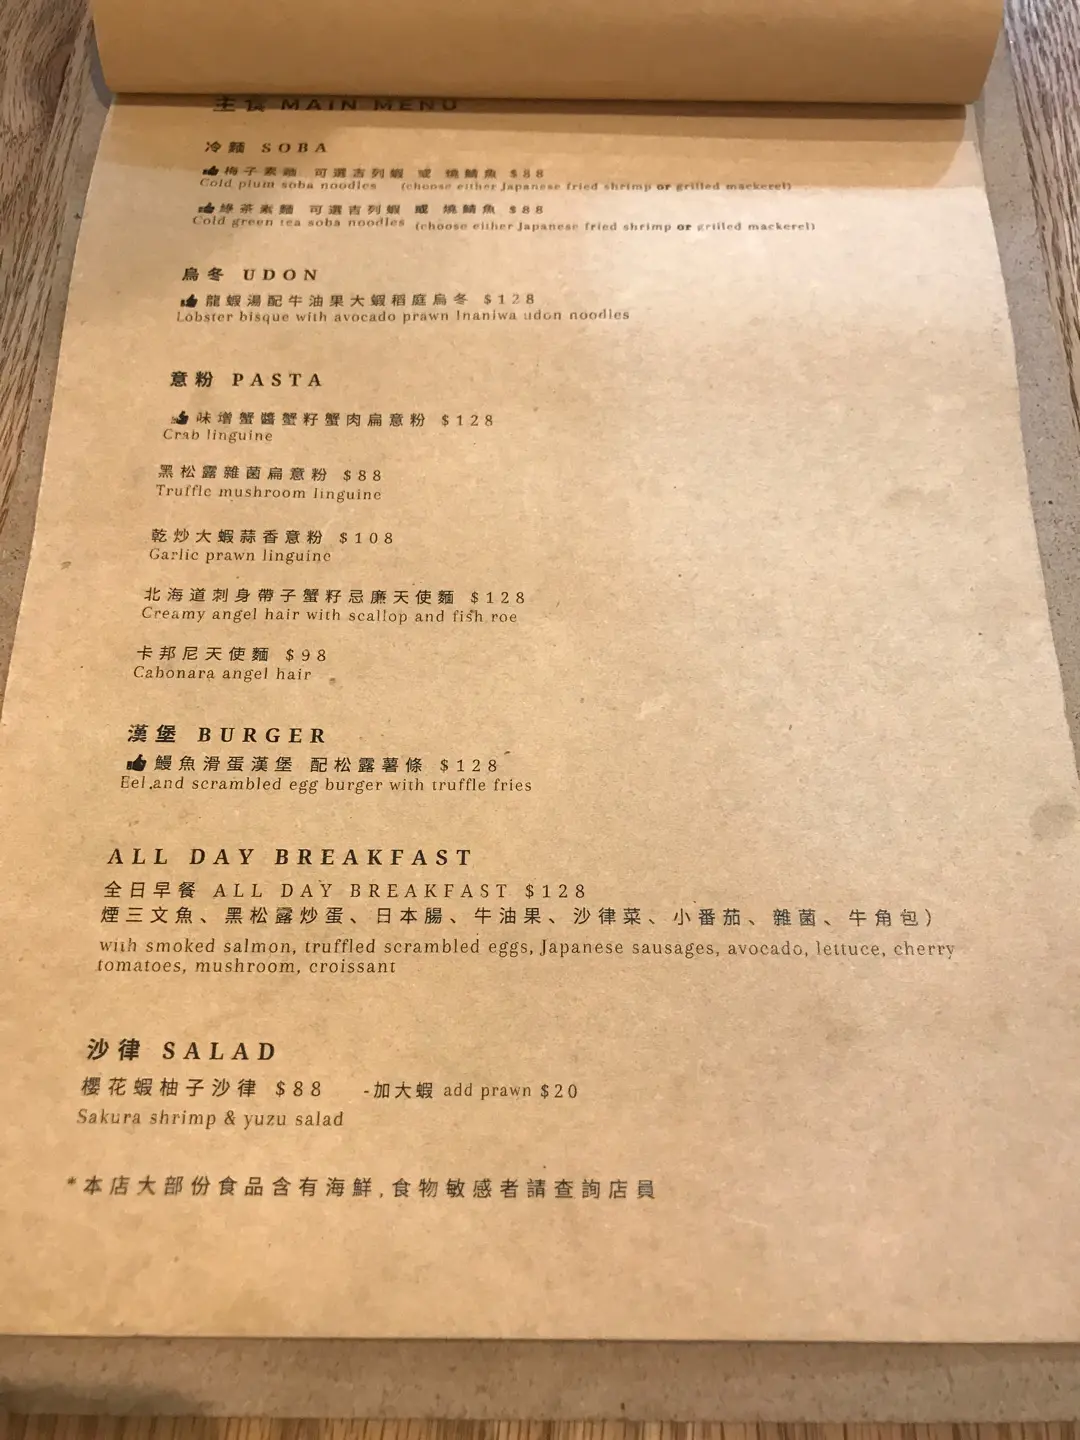 主食 MAIN MENU
冷麵 SOBA
梅子素麵 可選吉列蝦 或 燒鯖魚 $88
Cold plum soba noodles (choose either Japanese fried shrimp or grilled mackerel)
綠茶素麵 可選吉列蝦 或 燒鯖魚 $88
Cold green tea soba noodles (choose either Japanese fried shrimp or grilled mackerel)
烏冬 UDON
龍蝦湯配牛油果大蝦稻庭烏冬 $128
Lobster bisque with avocado prawn Inaniwa udon noodles
意粉 PASTA
味增蟹醬蟹籽蟹肉扁意粉 $128
Crab linguine
黑松露雜菌扁意粉 $88
Truffle mushroom linguine
乾炒大蝦蒜香意粉 $108
Garlic prawn linguine
北海道刺身帶子蟹籽忌廉天使麵 $128
Creamy angel hair with scallop and fish roe
卡邦尼天使麵 $98
Cabonara angel hair
漢堡 BURGER
鰻魚滑蛋漢堡 配松露薯條 $128
Eel and scrambled egg burger with truffle fries
ALL DAY BREAKFAST
全日早餐 ALL DAY BREAKFAST $128
煙三文魚、黑松露炒蛋、日本腸、牛油果、沙律菜、小番茄、雜菌、牛角包）
with smoked salmon, truffled scrambled eggs, Japanese sausages, avocado, lettuce, cherry
tomatoes, mushroom, croissant
沙律 SALAD
櫻花蝦柚子沙律 $88 -加大蝦 add prawn $20
Sakura shrimp & yuzu salad
*本店大部份食品含有海鮮,食物敏感者請查詢店員